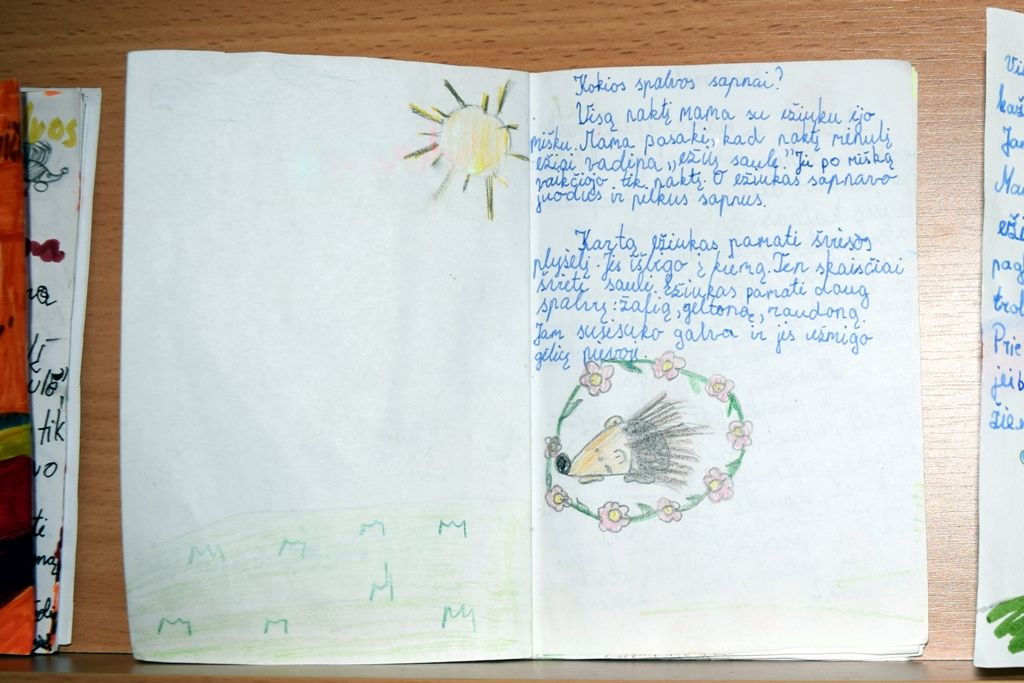 vos
tik
Kokios spalvos sapnai?
Visą naktį mama su ežiuku ėjo
mišku. Mama pasakė, kad naktį mėnulį
ežiai vadina „ežių saulė." Jie po mišką
vaikčiojo tik naktį. O ežiukas sapnavo
juodus ir pilkus sapnus.
Kartą ežiukas pamatė šviesos
plyšelį. Jis išbėgo į kiemą. Ten skaisčiai
švietė saulė. Ežiukas pamatė daug
spalvų: žalią, geltoną, raudoną.
Jam susisuko galva ir jis užmigo
gėlių pievoje.